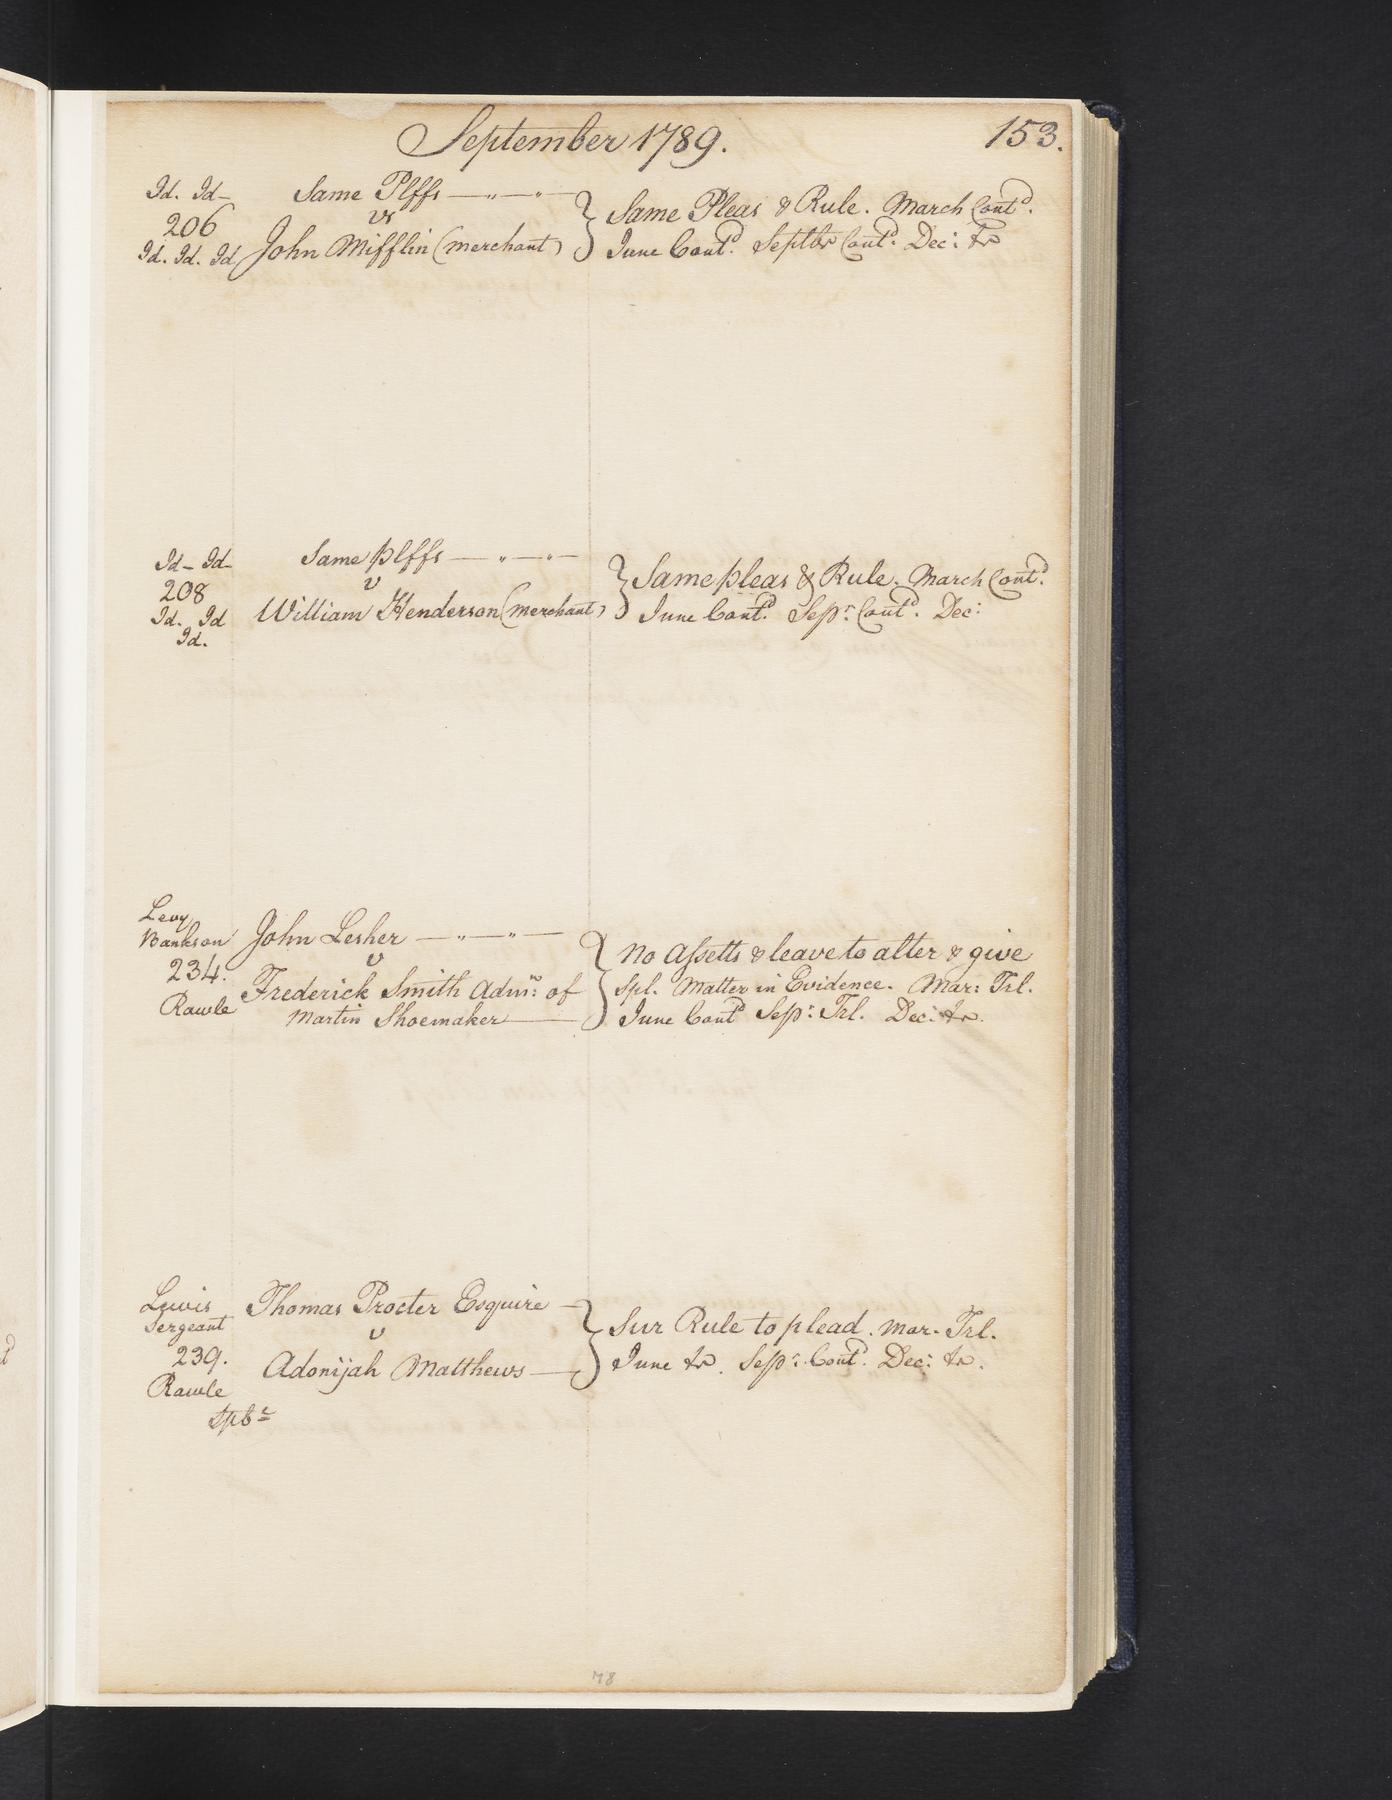 September 1789. 153.
Id. Id- Same Plffs — " — "
206 vs
Id. Id. Id John Mifflin (merchant)
Same Pleas & Rule. March Contd.
June Contd. Septbr Contd. Dec: Tr
Id- Id- Same plffs — " — "
208 v
Id. Id William Henderson (merchant)
Id.
Same pleas & Rule. March Contd.
June Contd. Sepr: Contd. Dec:
Levy
Bankson John Lesher — " — "
234. v
Rawle Frederick Smith Admr: of
Martin Shoemaker
No Assetts & leave to alter & give
Spl. Matter in Evidence. Mar: Trl.
June Contd Sepr: Trl. Dec: Tr.
Lewis Thomas Procter Esquire
Sergeant v
239. Adonijah Matthews
Rawle
Sur Rule to plead. Mar- Trl.
June Tr. Sepr: Contd. Dec: Tr.
78